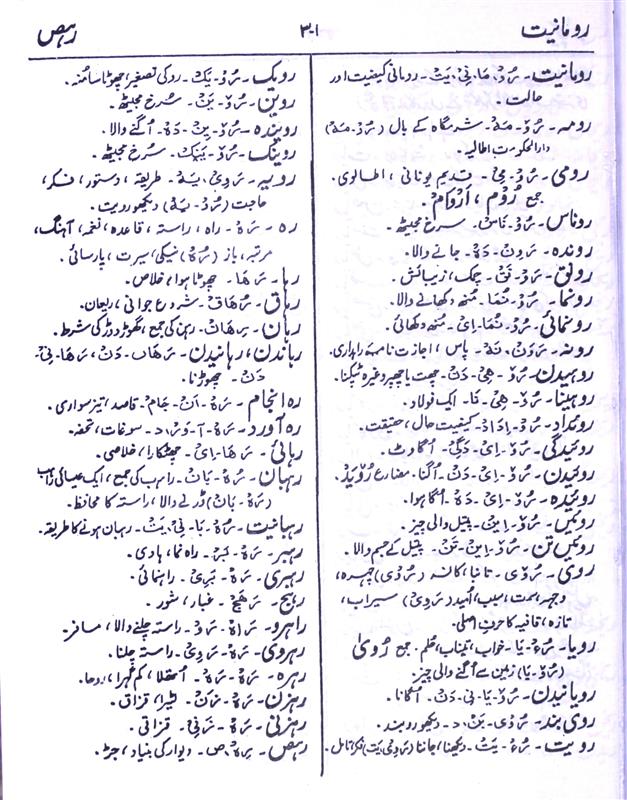 رومانیت
۳۰۱
رہص
رومانیت۔ رُوْ۔ مَا۔ نِیْ۔ یَتْ۔ رومانی کیفیت اور
حالت۔
رومہ۔ رُوْ۔ مَہْ۔ شرمگاہ کے بال (رُوْ۔ مَہْ)
دارالحکومت اطالیہ۔
رومی۔ رُوْ۔ مِیْ۔ قدیم یونانی، اطالوی۔
جمع رُوْم، اَرْوَام۔
روناس۔ رُوْ۔ نَاسْ۔ سرخ مجیٹھ۔
روندہ۔ رَ۔ وِنْ۔ دَہْ۔ جانے والا۔
رونق۔ رَوْ۔ نَقْ۔ چمک، زیبائش۔
رونما۔ رُوْ۔ نُمَا۔ منھ دکھانے والا۔
رونمائی۔ رُوْ۔ نُمَا۔ اِیْ۔ منھ دکھائی۔
رونہ۔ رَوَنْ۔ نَہْ۔ پاس، اجازت نامہ راہداری۔
روہیدن۔ رُوْ۔ ہِیْ۔ دَنْ۔ چھت یا چھپر وغیرہ ٹپکنا۔
روہینا۔ رُوْ۔ ہِیْ۔ نَا۔ ایک فولاد۔
روئداد۔ رُوْ۔ اِدَادْ۔ کیفیت حال، حقیقت۔
روئیدگی۔ رُوْ۔ اِیْ۔ دَگِیْ۔ اگاوٹ۔
روئیدن۔ رُوْ۔ اِیْ۔ دَنْ۔ اگنا۔ مضارع رُوْیَدْ۔
روئیدہ۔ رُوْ۔ اِیْ۔ دَہْ۔ اگا ہوا۔
روئیں۔ رُوْ۔ اِیْنْ۔ پیتل والی چیز۔
روئیں تن۔ رُوْ۔ اِیْنْ۔ تَنْ۔ پیتل کے جسم والا۔
روی۔ رُوْی۔ تانبا، کانسہ (رُوْی) چہرہ،
وجہ، سمت، سبب، امید (رَوِیْ) سیراب،
تازہ، قافیہ کا حرف اصلی۔
رویا۔ رُءْ۔ یَا۔ خواب، حلم۔ جمع رُوئیٰ
(رُوْ۔ یَا) زمین سے اگنے والی چیز۔
رویانیدن۔ رُوْ۔ یَا۔ نِیْ۔ دَنْ۔ اگانا۔
روی بند۔ رُوْیْ۔ بَنْ۔ د۔ دیکھو روبند۔
رویت۔ رُءْ۔ یَتْ۔ دیکھنا، جاننا (رَوِیْ۔ یَتْ) فکر، تامل۔
رویک۔ رُوْ۔ یَکْ۔ رو کی تصغیر، چھوٹا سا منہ۔
روین۔ رُوْ۔ یَنْ۔ سرخ مجیٹھ۔
رویندہ۔ رُوْ۔ یِنْ۔ دَہْ۔ اگنے والا۔
روینک۔ رُوْ۔ یَنَکْ۔ سرخ مجیٹھ۔
رویہ۔ رَوِیْ۔ یَہْ۔ طریقہ، دستور، فکر،
حاجت (رُوْ۔ یَہْ) دیکھو رویت۔
رہ۔ رَہْ۔ راہ، راستہ، قاعدہ، نغمہ، آہنگ،
مرتبہ، باز (رُہْ) نیکی، سیرت، پارسائی۔
رہا۔ رَہَا۔ چھوٹا ہوا، خلاص۔
رہاق۔ رُہَاقْ۔ شروع جوانی، ریعان۔
رہان۔ رِہَانْ۔ رہن کی جمع، گھوڑ دوڑ کی شرط۔
رہاندن، رہانیدن۔ رَہَاں۔ دَنْ، رَہَا۔ نِیْ۔
دَنْ۔ چھوڑنا۔
رہ انجام۔ رَہْ۔ اَنْ۔ جَامْ۔ قاصد، تیز سواری۔
رہ آورد۔ رَہْ۔ آ۔ وَرْ، د۔ سوغات، تحفہ۔
رہائی۔ رَہَا۔ اِیْ۔ چھٹکارا، خلاصی۔
رہبان۔ رُہْ۔ بَانْ۔ راہب کی جمع، ایک عیسائی راہب
(رَہْ۔ بَانْ) ڈرنے والا، راستہ کا محافظ۔
رہبانیت۔ رُہْ۔ بَا۔ نِیْ۔ یَتْ۔ رہبان ہونے کا طریقہ۔
رہبر۔ رَہْ۔ بَرْ۔ راہ نما، ہادی۔
رہبری۔ رَہْ۔ بَرِیْ۔ راہنمائی۔
رہج۔ رَہَجْ۔ غبار، شور۔
راہرو۔ رَاہْ۔ رَوْ۔ راستہ چلنے والا، مسافر۔
رہروی۔ رَہْ۔ رَوِیْ۔ راستہ چلنا۔
رہرہ۔ رَہْ۔ رَہْ۔ اتھلا، کم گہرا،
رہزن۔ رَہْ۔ زَنْ۔ لٹیرا، قزاق۔
رہزنی۔ رَہْ۔ زَنِیْ۔ قزاقی۔
رہص۔ رِہْ، ص۔ دیوار کی بنیاد، جڑ۔